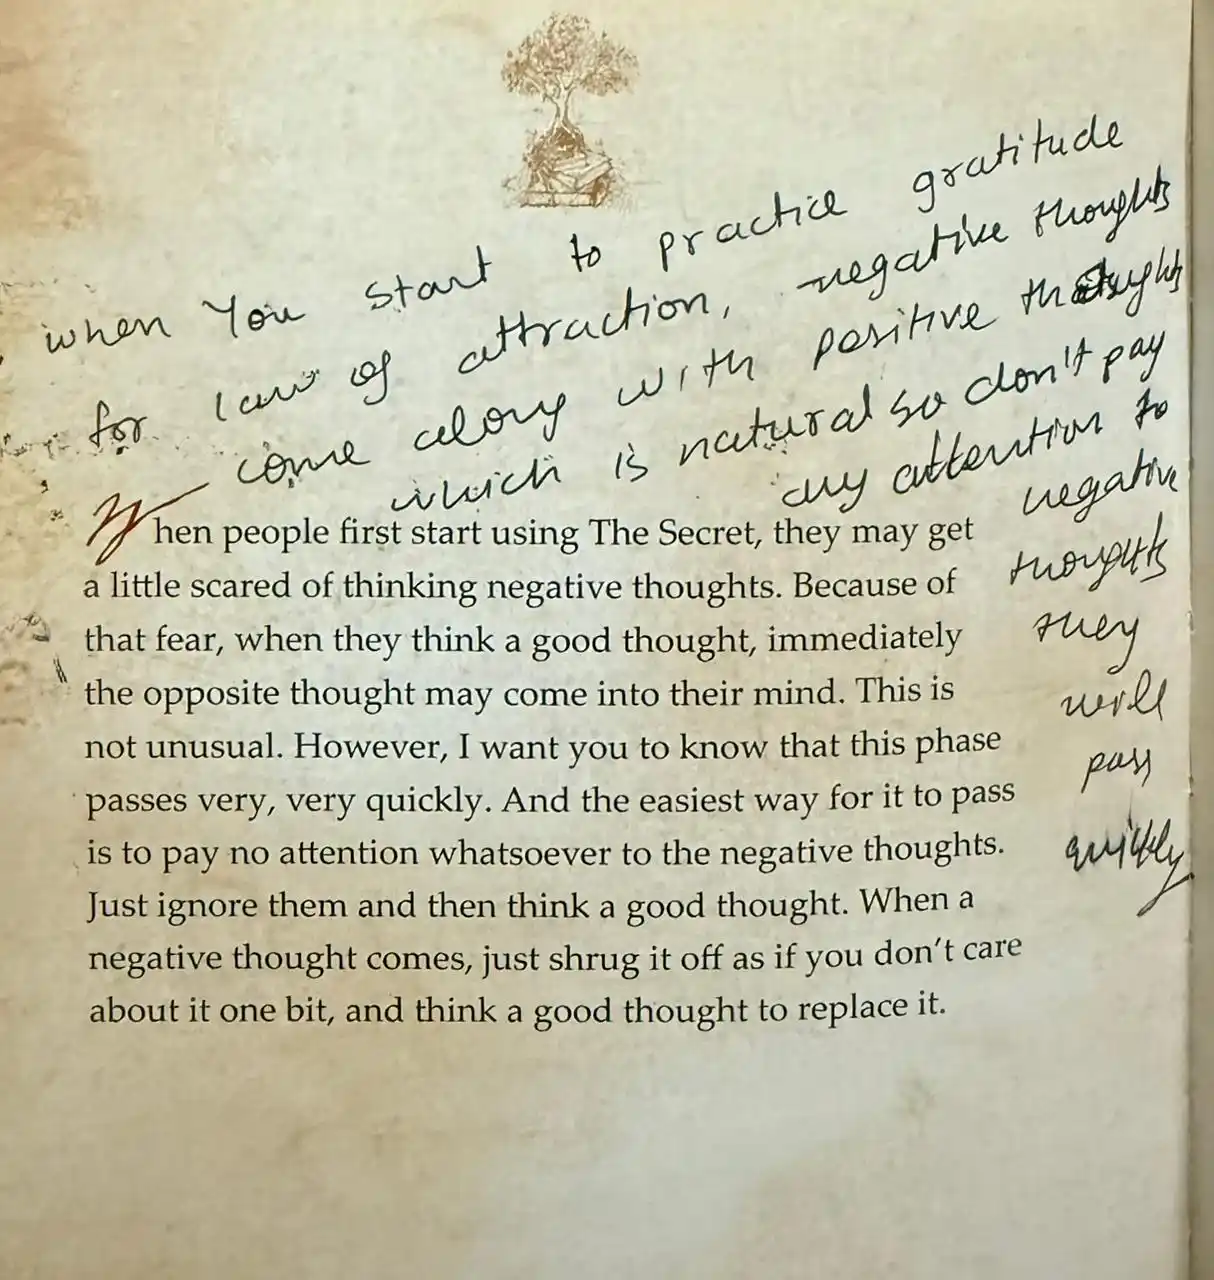 when You start to practice gratitude
for law of attraction, negative thoughts
come along with positive thoughts
which is natural so don't pay
any attention to
negative
thoughts
they
will
pass
quickly
When people first start using The Secret, they may get
a little scared of thinking negative thoughts. Because of
that fear, when they think a good thought, immediately
the opposite thought may come into their mind. This is
not unusual. However, I want you to know that this phase
passes very, very quickly. And the easiest way for it to pass
is to pay no attention whatsoever to the negative thoughts.
Just ignore them and then think a good thought. When a
negative thought comes, just shrug it off as if you don't care
about it one bit, and think a good thought to replace it.